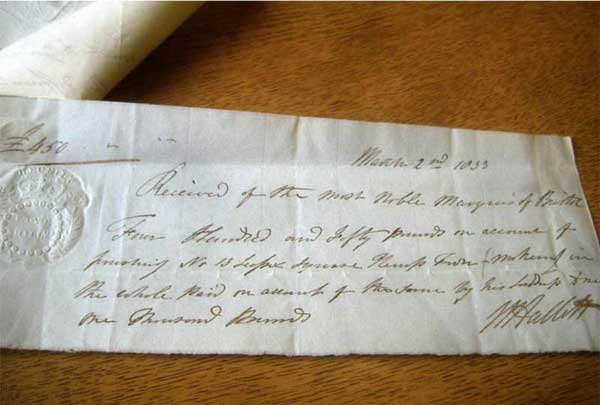 £450 " "
March 2nd 1833
Received of the most Noble Marquis of Bristol
Four Hundred and fifty pounds on account of
finishing No 19 Sussex Square Kemp Town (making in
the whole paid on account of the same by his Lordship
one Thousand Pounds
Wm Hallett